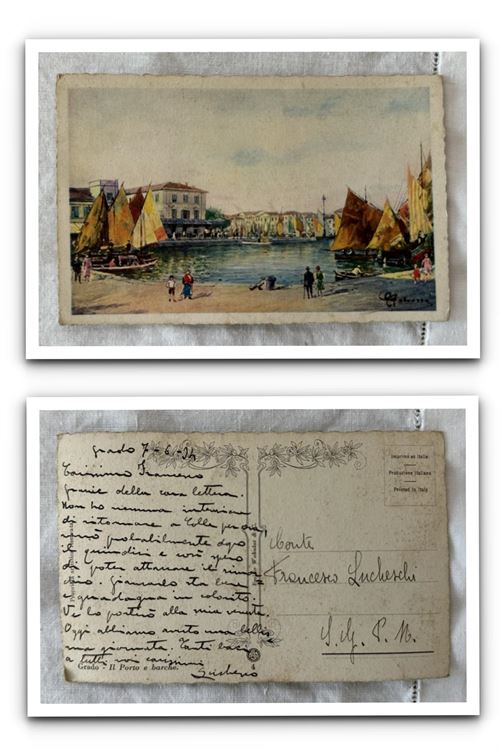 Grado 7-6-34
Carissimo Francesco
grazie della cara lettera.
Non ho nessuna intenzione
di ritornare a Colle per ora,
probabilmente dopo
il quindici e così spero
di poter attuare il
Giancarlo sta bene
e guadagna in colorito.
Ve lo porterò alla mia venuta.
Oggi abbiamo avuto una bellis
sima giornata. Tanti baci
a tutti voi carissimi
Grado - Il Porto e barche.
4
Imprimé en Italie
Produzione Italiana
Printed in Italy
Conte
Francesco Lucheschi
S. G. P. M.